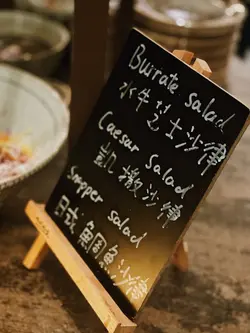 Burrate salad
水牛芝士沙律
Caesar Salad
凱撒沙律
Snapper salad
日式鯛魚沙律